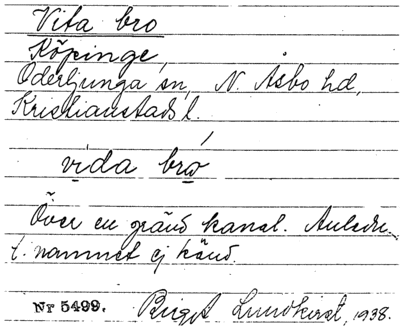 Vita bro
Köpinge,
Oderljunga sn, N. Åsbo hd,
Kristianstads l.
vida bro
Över en grävd kanal. Anledn.
t. namnet ej känd.
Nr 5499. Birgit Lundkvist, 1938.